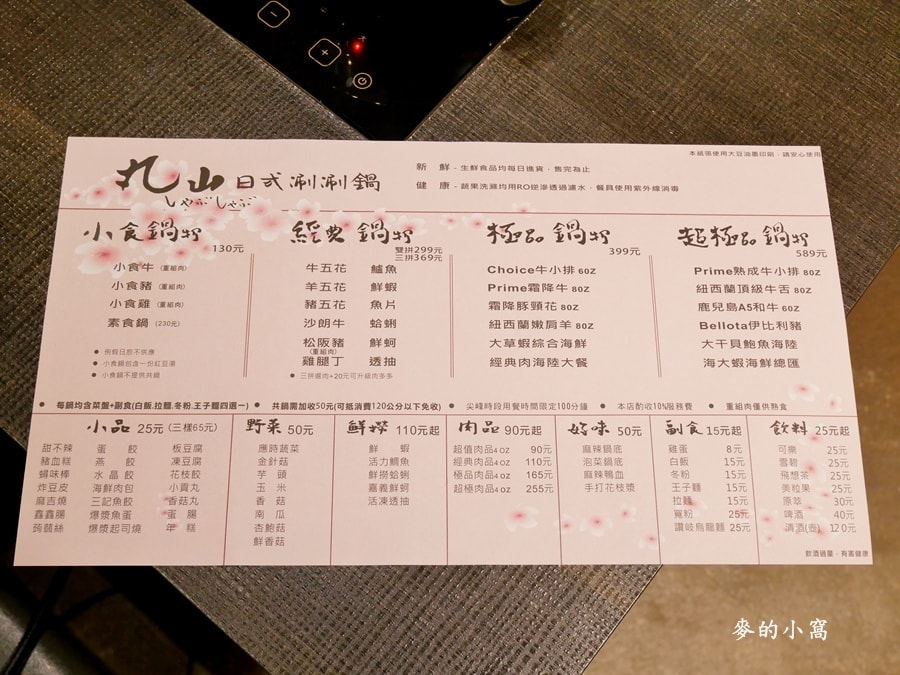 本紙張使用大豆油墨印刷，請安心使用
丸山日式涮涮鍋
しゃぶしゃぶ
新 鮮 - 生鮮食品均每日進貨，售完為止
健 康 - 蔬果洗滌均用RO逆滲透過濾水，餐具使用紫外線消毒
小食鍋物 130元
小食牛 (重組肉)
小食豬 (重組肉)
小食雞 (重組肉)
素食鍋 (230元)
● 例假日恕不供應
● 小食鍋包含一份紅豆湯
● 小食鍋不提供共鍋
經典鍋物 雙拼299元
三拼369元
牛五花 鱸魚
羊五花 鮮蝦
豬五花 魚片
沙朗牛 蛤蜊
松阪豬 鮮蚵
(重組肉)
雞腿丁 透抽
● 三拼選肉+20元可升級肉多多
極品鍋物 399元
Choice牛小排 6OZ
Prime霜降牛 8OZ
霜降豚頸花 8OZ
紐西蘭嫩肩羊 8OZ
大草蝦綜合海鮮
經典肉海陸大餐
超極品鍋物 589元
Prime熟成牛小排 8OZ
紐西蘭頂級牛舌 8OZ
鹿兒島A5和牛 6OZ
Bellota伊比利豬
大干貝鮑魚海陸
海大蝦海鮮總匯
● 每鍋均含菜盤+副食(白飯.拉麵.冬粉.王子麵四選一) ● 共鍋需加收50元(可抵消費120公分以下免收) ● 尖峰時段用餐時間限定100分鐘 ● 本店酌收10%服務費 ● 重組肉僅供熟食
小品 25元 (三樣65元)
甜不辣 蛋餃 板豆腐
豬血糕 燕餃 凍豆腐
蟳味棒 水晶餃 花枝餃
炸豆皮 海鮮肉包 小貢丸
麻吉燒 三記魚餃 香菇丸
鑫鑫腸 爆漿魚蛋 蛋腸
蒟蒻絲 爆漿起司燒 年糕
野菜 50元
應時蔬菜
金針菇
芋頭
玉米
香菇
南瓜
杏鮑菇
鮮香菇
鮮撈 110元起
鮮蝦
活力鯛魚
鮮撈蛤蜊
嘉義鮮蚵
活凍透抽
肉品 90元起
超值肉品4OZ 90元
經典肉品4OZ 110元
極品肉品4OZ 165元
超極肉品4OZ 255元
好味 50元
麻辣鍋底
泡菜鍋底
麻辣鴨血
手打花枝漿
副食 15元起
雞蛋 8元
白飯 15元
冬粉 15元
王子麵 15元
拉麵 15元
寬粉 25元
讚岐烏龍麵 25元
飲料 25元起
可樂 25元
雪碧 25元
飛想茶 25元
美粒果 25元
原萃 30元
啤酒 40元
清酒(壺) 120元
飲酒過量，有害健康
麥的小窩